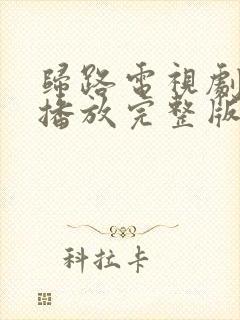 歸路電視劇
播放完整版
科拉卡